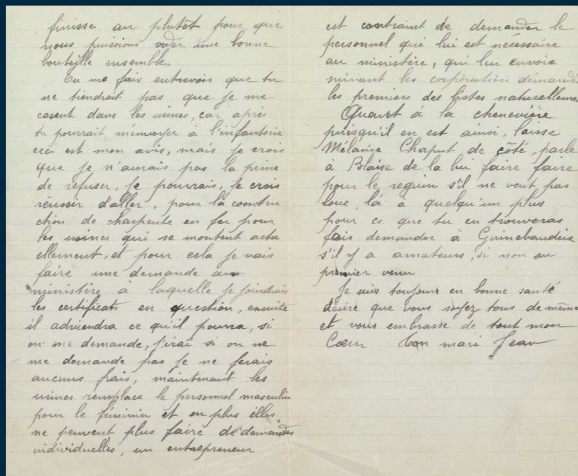 finisse au plutôt pour que
nous puissions vider une bonne
bouteille ensemble.
Tu me fais entrevoir que tu
ne tiendrait pas que je me
casent dans les usines, car après
tu pourrait m'envoyer à l'infanterie
ceci est mon avis, mais je crois
que je n'aurais pas la peine
de refuser, je pourrais, je crois
réussir d'aller, pour la constru
ction de charpente en fer pour
les usines qui se montent actu
ellement, et pour cela je vais
faire une demande au
ministère à laquelle je joindrais
les certificats en question, ensuite
il adviendra ce qu'il pourra, si
on me demande, j'irai si on ne
me demande pas je ne ferais
aucuns frais, maintenant les
usines remplace le personnel masculin
pour le féminin et en plus elles
ne peuvent plus faire de demandes
individuelles, un entrepreneur
est contraint de demander le
personnel qui lui est nécessaire
au ministère, qui leu envoie
suivant les corporations demandé
les premiers des listes naturelleme
Quant à la chenevière
puisqu'il en est ainsi, laisse
Mélanie Chaput de côté, parle
à Blaise de la lui faire faire
pour le regain s'il ne veut pas
loue la à quelqu'un plus
pour ce que tu en trouveras
fais demander à
s'il y a amateurs, si non au
premier venu
Je suis toujours en bonne santé
désire que vous soyez tous de même
et vous embrasse de tout mon
Cœur Ton mari Jean